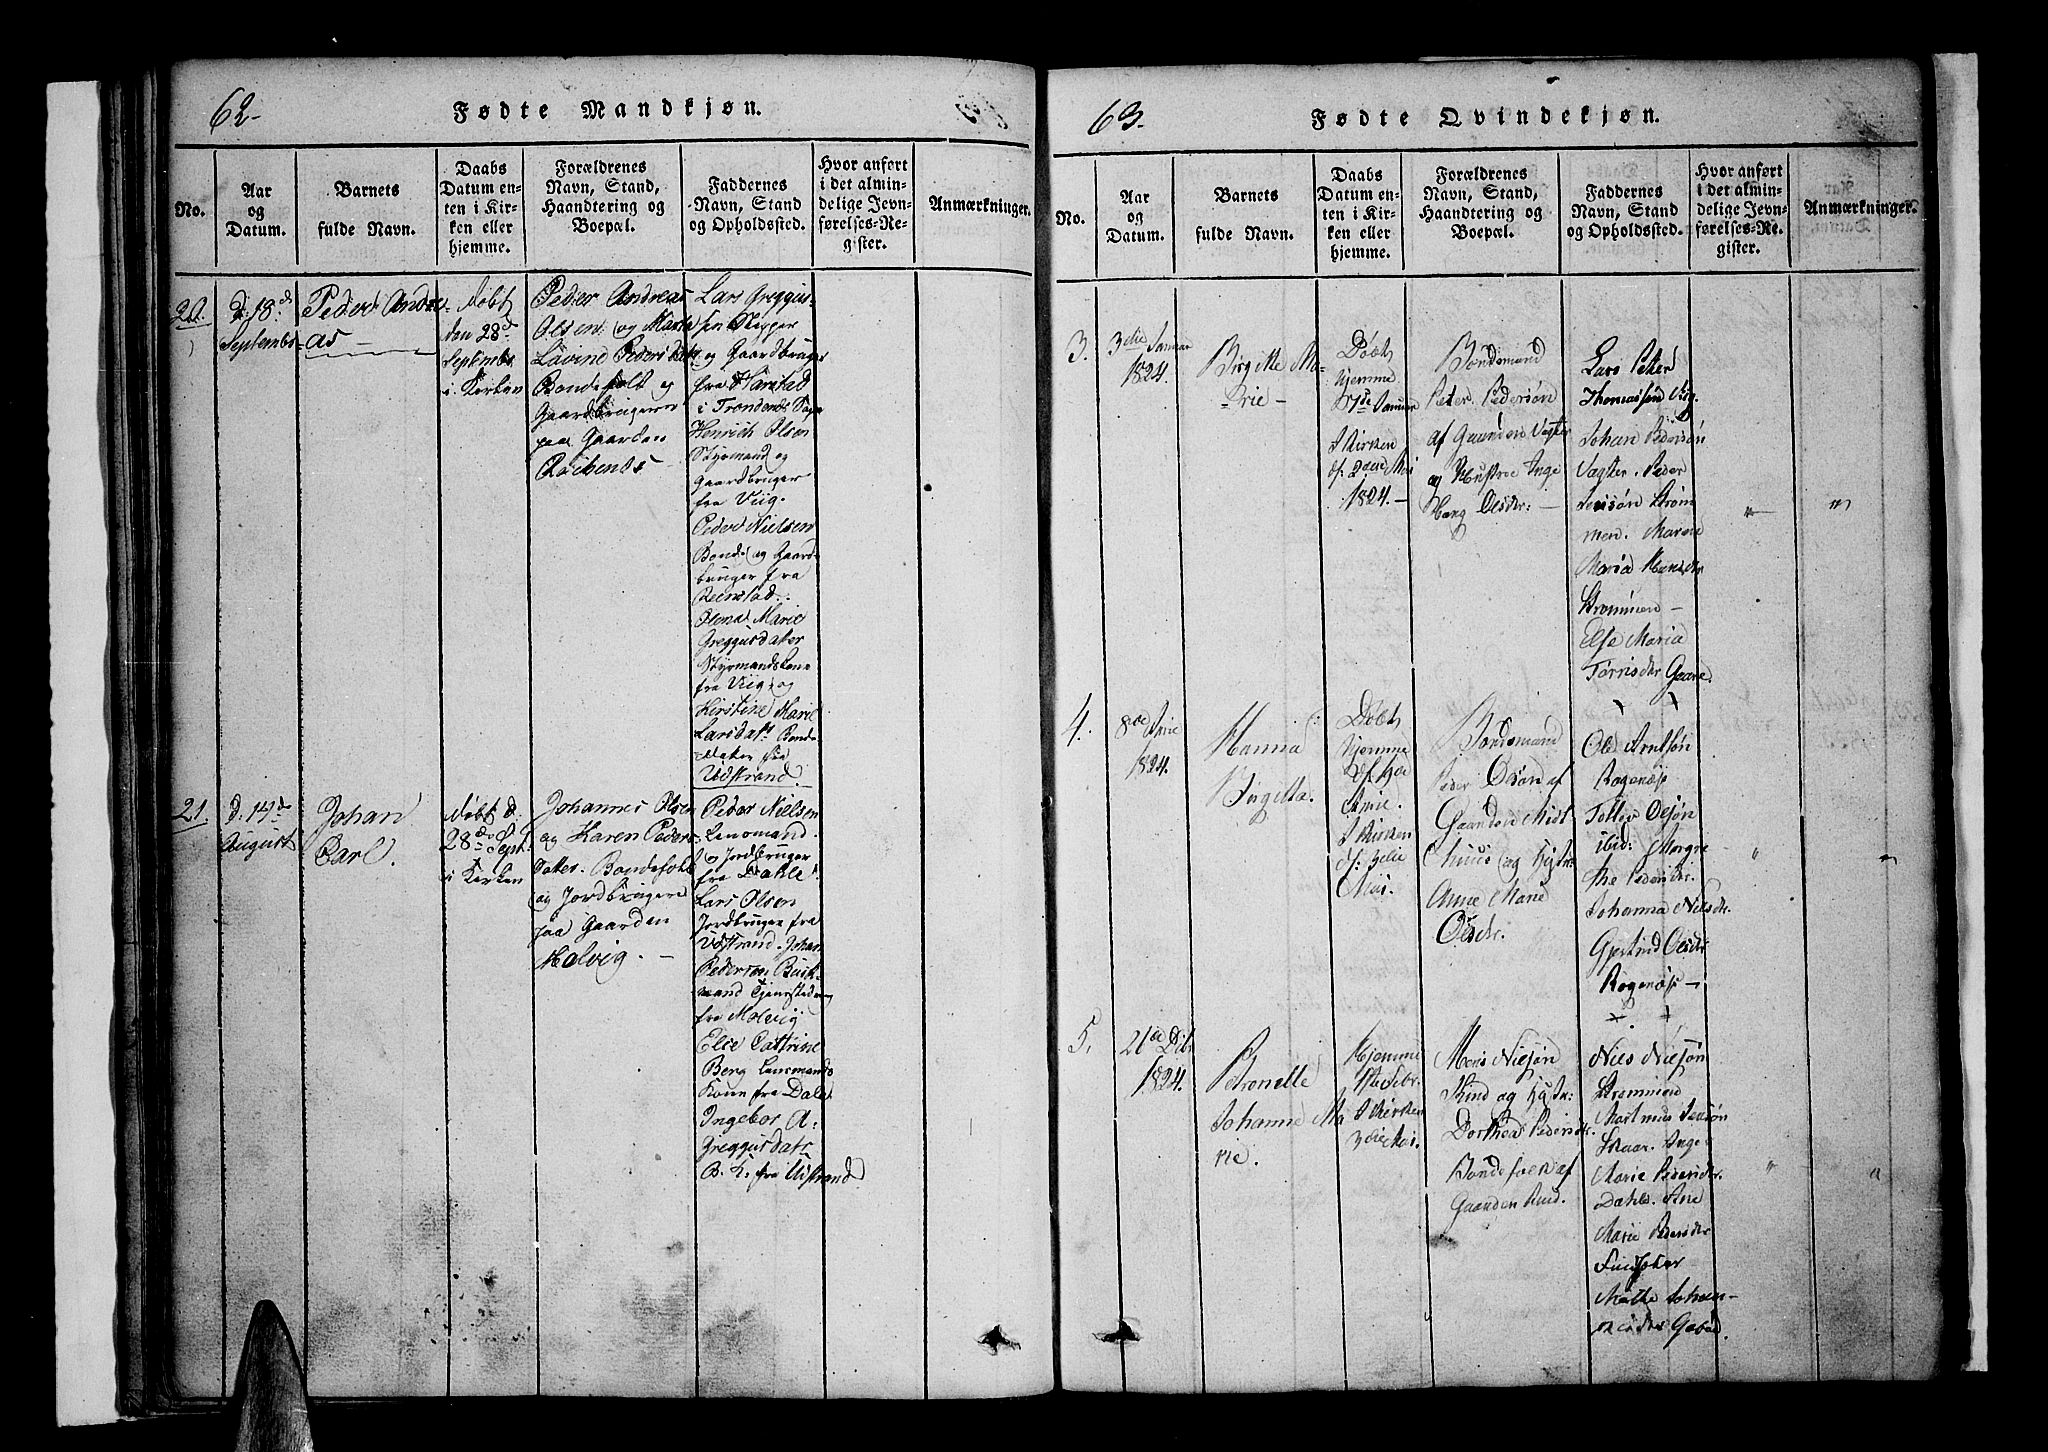 62-
Fødte Mandkjøn.
No.
Aar
og
Datum.
Barnets
fulde Navn.
Daabs
Datum en-
ten i Kir-
ken eller
hjemme.
Forældrenes
Navn, Stand,
Haandtering og
Boepæl.
Faddernes
Navn, Stand
og Opholdssted.
Hvor anført
i det almin-
delige Jevn-
førelses-Re-
gister.
Anmærkninger.
20.
D. 18d
Septembr
Peder Andre-
as
Døbt
den 28d
Septembr
i Kirken
Peder Andreas
Olsen og Maria
Lavine Pedersdatt
Bondefolk og
Gaardbrugere
paa Gaarden
Lars Greggus-
sen Skipper
og Gaardbruger
fra Harstad
i Trondenæs Sogn
Henrich Olsen
Styrmand og
Gaardbruger
fra Viig.
Peder Nielsen
Bonde og Gaard-
bruger fra
Olena Marie
Greggusdater
Styrmandskone
fra Viig, og
Kirstine Marie
Larsdatr Bonde-
Datter fra
Udstrand
21.
D. 14d
August
Johan
Carl.
Døbt d.
28de Sept.
i Kirken
Johannes Olsen
og Karen Peders-
datter. Bondefolk
og Jordbrugere
paa Gaarden
Molvig. -
Peder Nielsen
Lensmand.
og Jordbruger
fra Dahle.
Lars Olsen
Jordbruger fra
Udstrand. Johan
Pedersen
Tjenestedreng
fra Molvig
Else Cattrine
Berg Lensmands
Kone fra Dale
Ingebor A.
Greggusdatr
B. K. fra Udstrand
63.
Fødte Qvindekjøn.
No.
Aar
og
Datum.
Barnets
fulde Navn.
Daabs
Datum en-
ten i Kir-
ken eller
hjemme.
Forældrenes
Navn, Stand,
Haandtering og
Boepæl.
Faddernes
Navn, Stand
og Opholdssted.
Hvor anført
i det almin-
delige Jevn-
førelses-Re-
gister.
Anmærkninger.
3.
3die Januar
1824.
Birgitte Ma-
rie -
Døbt
hjemme
Januar
I Kirken
d. 2den Mai
1824. -
Bondemand
Peter Pedersøn
af Gaarden Vagter
og Hustroe Inge
borg Olsdr: -
Lars Peter
Thomassen Viig
Johan Pedersøn
Vagter. Peder
Jensøn Strøm
men. Maren
Maria Hansdr
Strømmen -
Else Maria
Torrisdr Gaare.
4.
8de
1824.
Hanna
Birgitta.
Døbt
hjemme
I Kirken
Mai.
Bondemand
Peder Olsøn af
Gaarden Midt
huus og Hustr:
Anne Marie
Olsdr.
Ole Arntsøn
Rogenæs
Tollev Olsøn
ibid: Margre-
the Pedersdr.
Johanna Nilsdr.
Gjertrud Olsdr
Rogenæs -
5.
21de
1824.
Petronelle
Johanne Ma
rie.
Hjemme
Febr.
I Kirken
3die Mai.
Mons Nilsøn
Rind og Hustr:
Dorthea Pedersdr.
Bondefolk af
Gaarden Rind.
Nils Nilsøn
Strømmen
Mortinus Jensøn
Skaar. Inge-
Marie Pedersdr.
Dahle. Ane
Marie Pedersdr
Mathe Johan-
nesdr